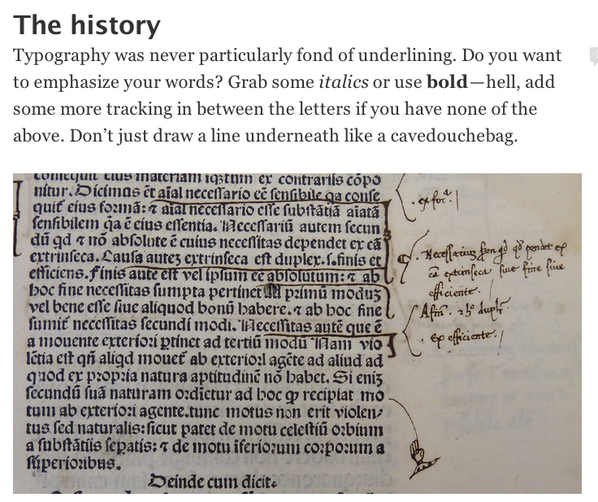 The history
Typography was never particularly fond of underlining. Do you want
to emphasize your words? Grab some italics or use bold—hell, add
some more tracking in between the letters if you have none of the
above. Don’t just draw a line underneath like a cavedouchebag.
nitur. Dicimus ēt aīal necessario eē sensibile qa conse
quit̄ eius formā: ⁊ aīal necessario esse substātiā aīatā
sensibilem qa ē eius essentia. Necessariū autem secun
dū qd ⁊ nō absolute ē cuius necessitas dependet ex cā
extrinseca. Causa autez extrinseca est duplex. s. finis et
efficiens. finis aute est vel ipsum eē absolutum: ⁊ ab
hoc fine necessitas sumpta pertinet primū moduz
vel bene esse siue aliquod bonū habere. ⁊ ab hoc fine
sumit̄ necessitas secundi modi. Necessitas autē que ē
a mouente exteriori ꝑtinet ad tertiū modū Nam vio
lētia est qn̄ aliqd mouet̄ ab exteriori agēte ad aliud ad
quod ex propria natura aptitudinē nō habet. Si eniz
secundū suā naturam ordīetur ad hoc recipiat mo
tum ab exteriori agente. tunc motus non erit violen⸗
tus sed naturalis: sicut patet de motu celestiū orbium
a substātiis sepatis: ⁊ de motu īferiorum corporum a
superioribus.
Deinde cum dicit.
efficiente.
Ex efficiente.